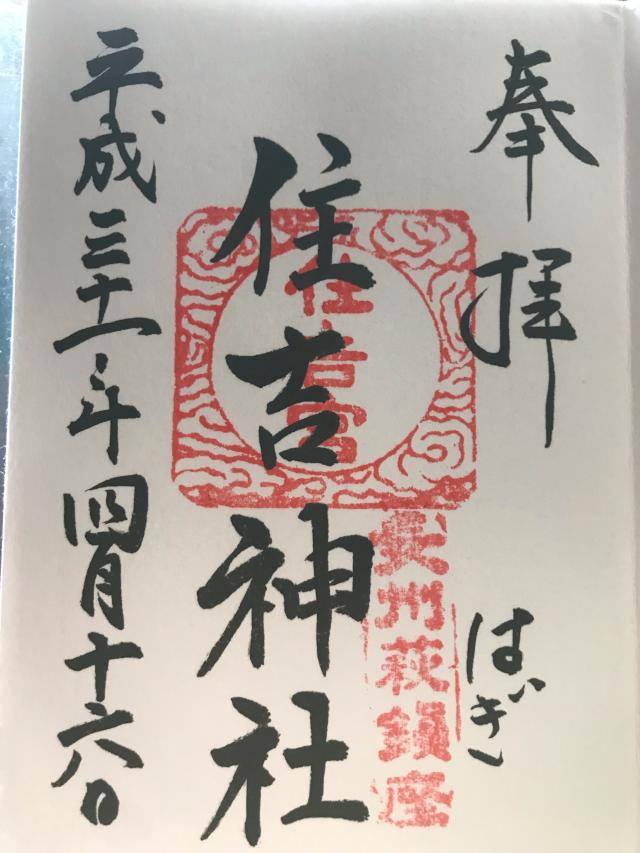 奉拝
はぎ
長州萩鎮座
住吉神社
住吉宮
平成三十一年四月十六日